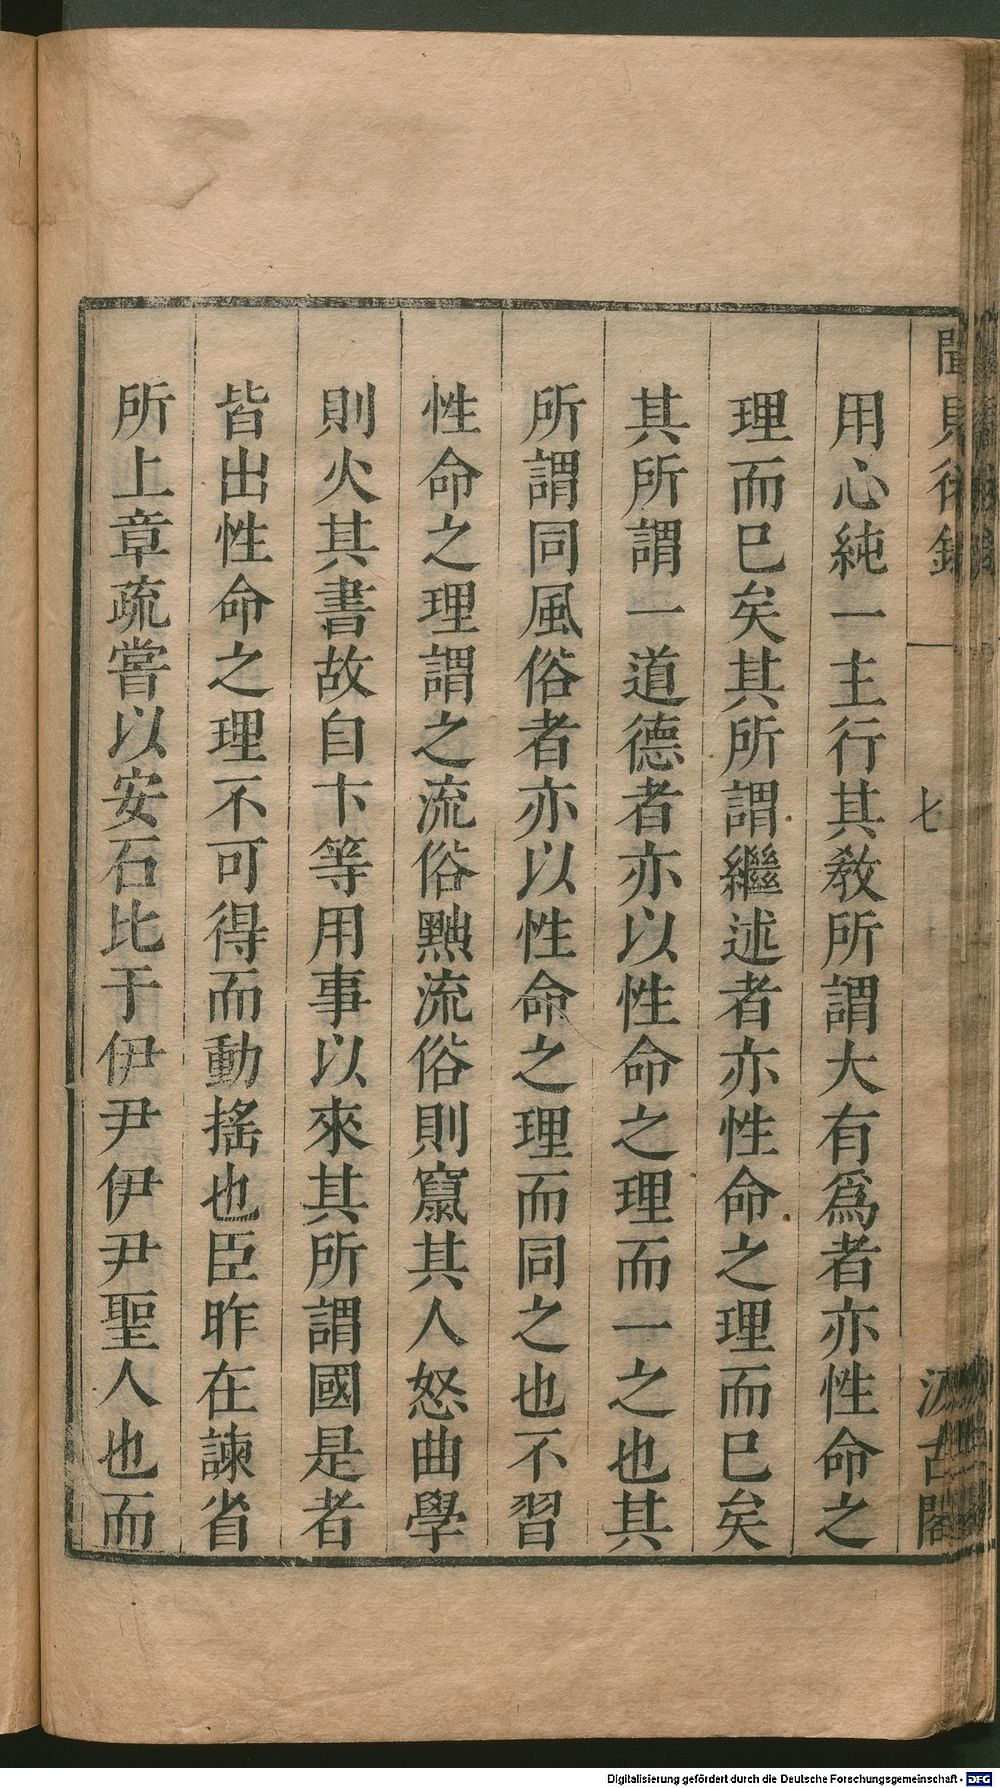 聞見後錄
七
汲古閣
用心純一主行其敎所謂大有爲者亦性命之
理而巳矣其所謂繼述者亦性命之理而巳矣
其所謂一道德者亦以性命之理而一之也其
所謂同風俗者亦以性命之理而同之也不習
性命之理謂之流俗黜流俗則竄其人怒曲學
則火其書故自卞等用事以來其所謂國是者
皆出性命之理不可得而動搖也臣昨在諫省
所上章疏嘗以安石比于伊尹伊尹聖人也而
Digitalisierung gefördert durch die Deutsche Forschungsgemeinschaft - DFG